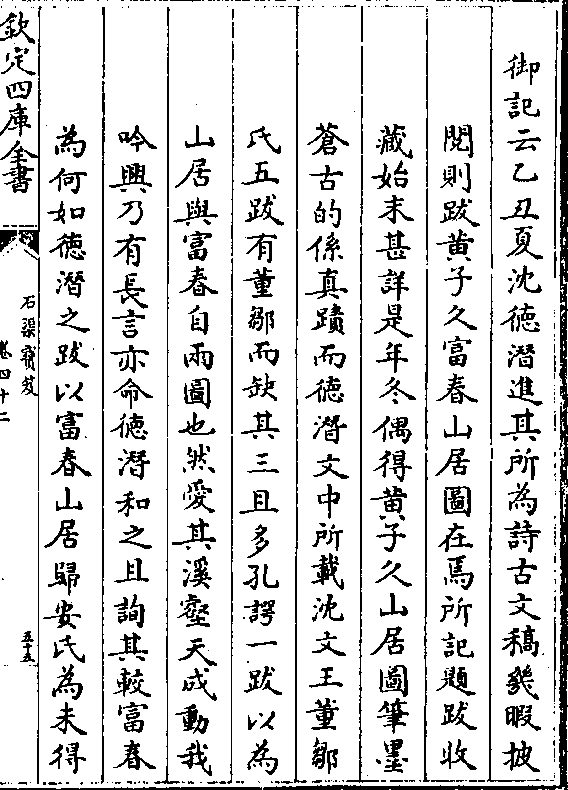 御記云乙丑夏沈徳潛進其所為詩古文稿㡬暇披
閱則跋黄子久富春山居圖在焉所記題跋收
藏始末甚詳是年冬偶得黄子久山居圖筆墨
蒼古的係真蹟而徳潛文中所載沈文王董鄒
氏五跋有董鄒而缺其三且多孔諤一跋以為
山居與富春自兩圖也然愛其溪壑天成動我
吟興乃有長言亦命徳潛和之且詢其較富春
為何如徳潛之跋以富春山居歸安氏為未得
欽定四庫全書
石渠寶笈
卷四十二
五十五